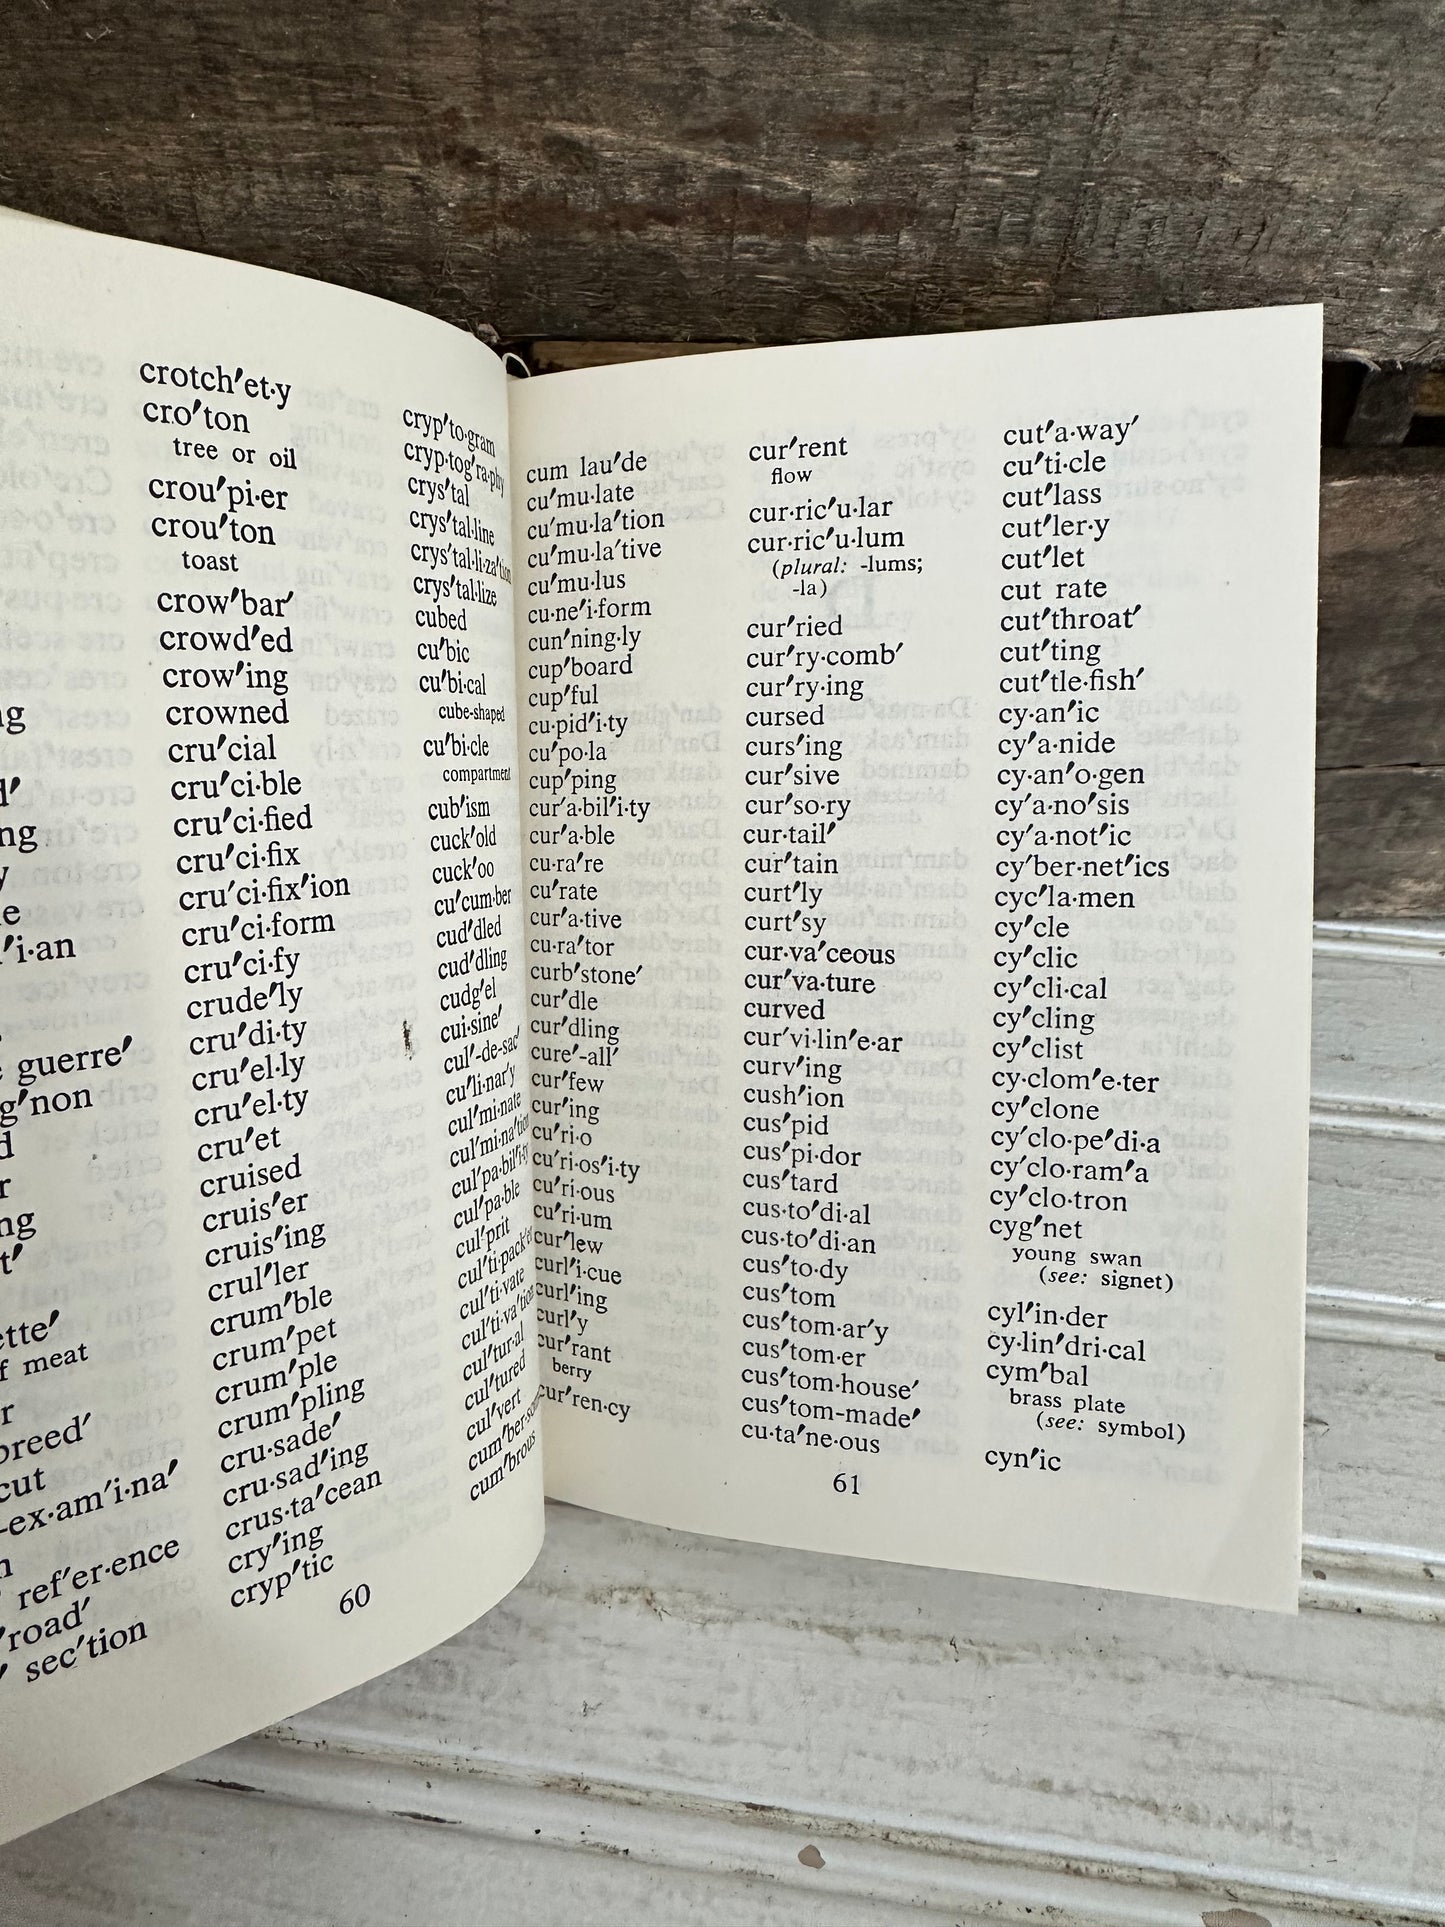 ng
ng
y
i·an
guerre′
g′non
d
r
ng
t′
ette′
f meat
r
breed′
cut
-ex·am′i·na′
n
ref′er·ence
′road′
sec′tion
crotch′et·y
cro′ton
tree or oil
crou′pi·er
crou′ton
toast
crow′bar′
crowd′ed
crow′ing
crowned
cru′cial
cru′ci·ble
cru′ci·fied
cru′ci·fix
cru′ci·fix′ion
cru′ci·form
cru′ci·fy
crude′ly
cru′di·ty
cru′el·ly
cru′el·ty
cru′et
cruised
cruis′er
cruis′ing
crul′ler
crum′ble
crum′pet
crum′ple
crum′pling
cru·sade′
cru·sad′ing
crus·ta′cean
cry′ing
cryp′tic
cryp′to·gram
cryp·tog′ra·phy
crys′tal
crys′tal·line
crys′tal·li·za′tion
crys′tal·lize
cubed
cu′bic
cu′bi·cal
cube-shaped
cu′bi·cle
compartment
cub′ism
cuck′old
cuck′oo
cu′cum·ber
cud′dled
cud′dling
cudg′el
cui·sine′
cul′-de-sac′
cu′li·nar′y
cul′mi·nate
cul′mi·na′tion
cul′pa·bil′i·ty
cul′pa·ble
cul′prit
cul′ti·pack′er
cul′ti·vate
cul′ti·va′tion
cul′tur·al
cul′tured
cul′vert
cum′ber·some
cum′brous
60
cum lau′de
cu′mu·late
cu′mu·la′tion
cu′mu·la′tive
cu′mu·lus
cu·ne′i·form
cun′ning·ly
cup′board
cup′ful
cu·pid′i·ty
cu′po·la
cup′ping
cur′a·bil′i·ty
cur′a·ble
cu·ra′re
cu′rate
cur′a·tive
cu·ra′tor
curb′stone′
cur′dle
cur′dling
cure′-all′
cur′few
cur′ing
cu′ri·o
cu′ri·os′i·ty
cu′ri·ous
cu′ri·um
cur′lew
curl′i·cue
curl′ing
curl′y
cur′rant
berry
cur′ren·cy
cur′rent
flow
cur·ric′u·lar
cur·ric′u·lum
(plural: -lums;
-la)
cur′ried
cur′ry·comb′
cur′ry·ing
cursed
curs′ing
cur′sive
cur′so·ry
cur·tail′
cur′tain
curt′ly
curt′sy
cur·va′ceous
cur′va·ture
curved
cur′vi·lin′e·ar
curv′ing
cush′ion
cus′pid
cus′pi·dor
cus′tard
cus·to′di·al
cus·to′di·an
cus′to·dy
cus′tom
cus′tom·ar′y
cus′tom·er
cus′tom·house′
cus′tom-made′
cu·ta′ne·ous
cut′a·way′
cu′ti·cle
cut′lass
cut′ler·y
cut′let
cut rate
cut′throat′
cut′ting
cut′tle·fish′
cy·an′ic
cy′a·nide
cy·an′o·gen
cy′a·no′sis
cy′a·not′ic
cy′ber·net′ics
cyc′la·men
cy′cle
cy′clic
cy′cli·cal
cy′cling
cy′clist
cy·clom′e·ter
cy′clone
cy′clo·pe′di·a
cy′clo·ram′a
cy′clo·tron
cyg′net
young swan
(see: signet)
cyl′in·der
cy·lin′dri·cal
cym′bal
brass plate
(see: symbol)
cyn′ic
61